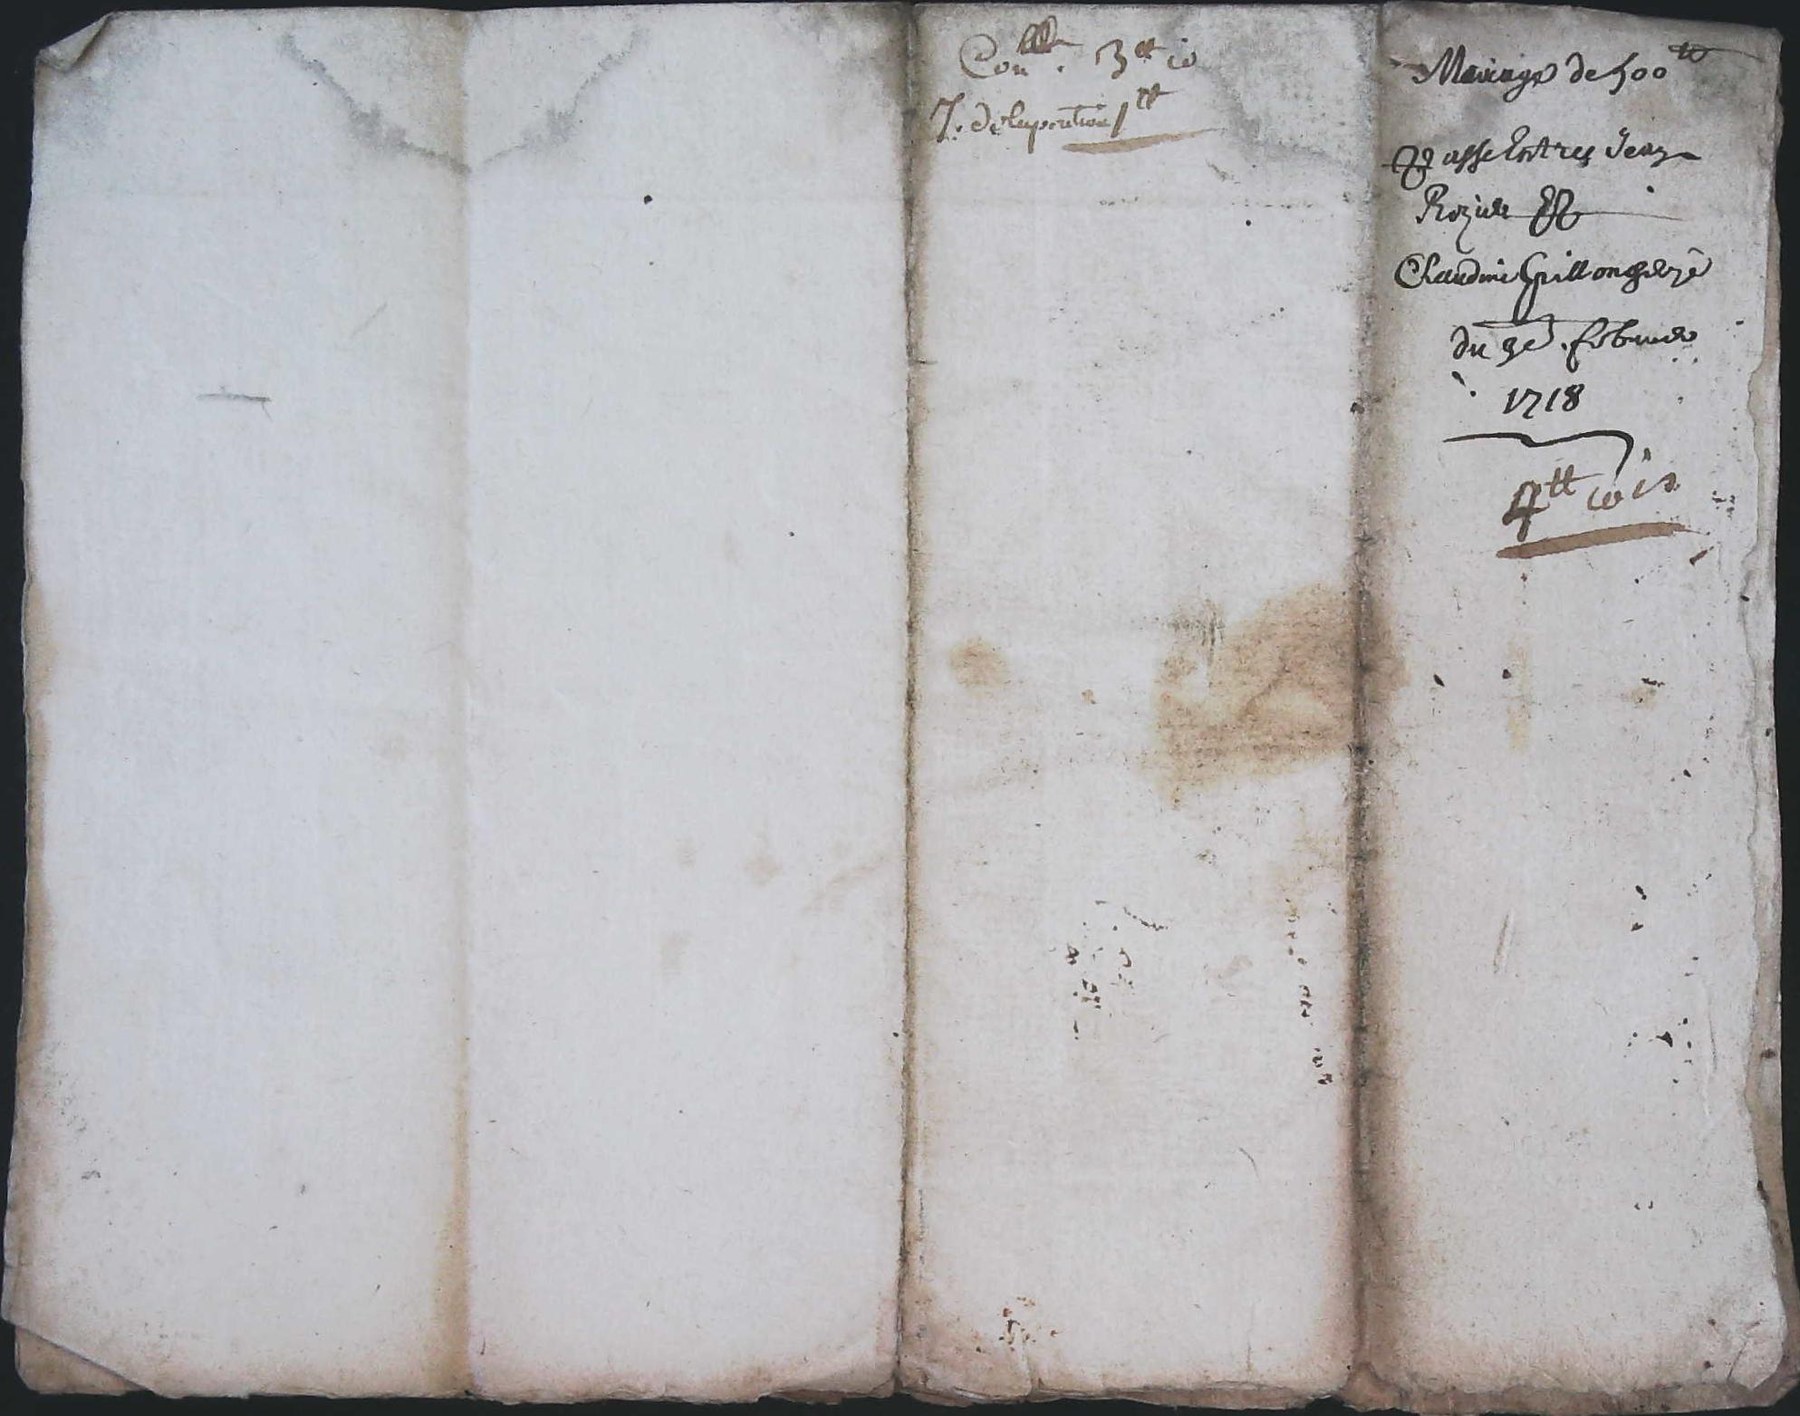 Con^lle. 3^tt 10
7. de lep..ation 1^tt
Mariage de 500^tt
Passe Entres Jean
Rozier Et
Claudine Grillon
du 3e. febvrier
1718
4^tt 10^s